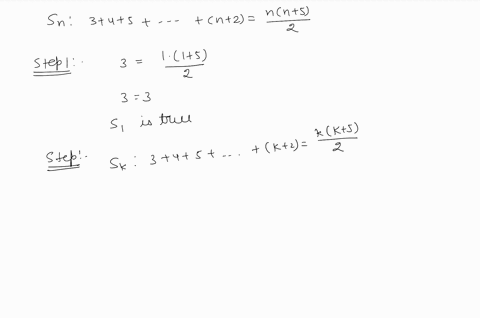 Sn: 3+4+5 + ---- + (n+2) = n(n+5)/2
Step1:. 3 = 1.(1+5)/2
3 = 3
S1 is true
Step:. Sk: 3+4+5+ .... + (k+2) = k(k+5)/2